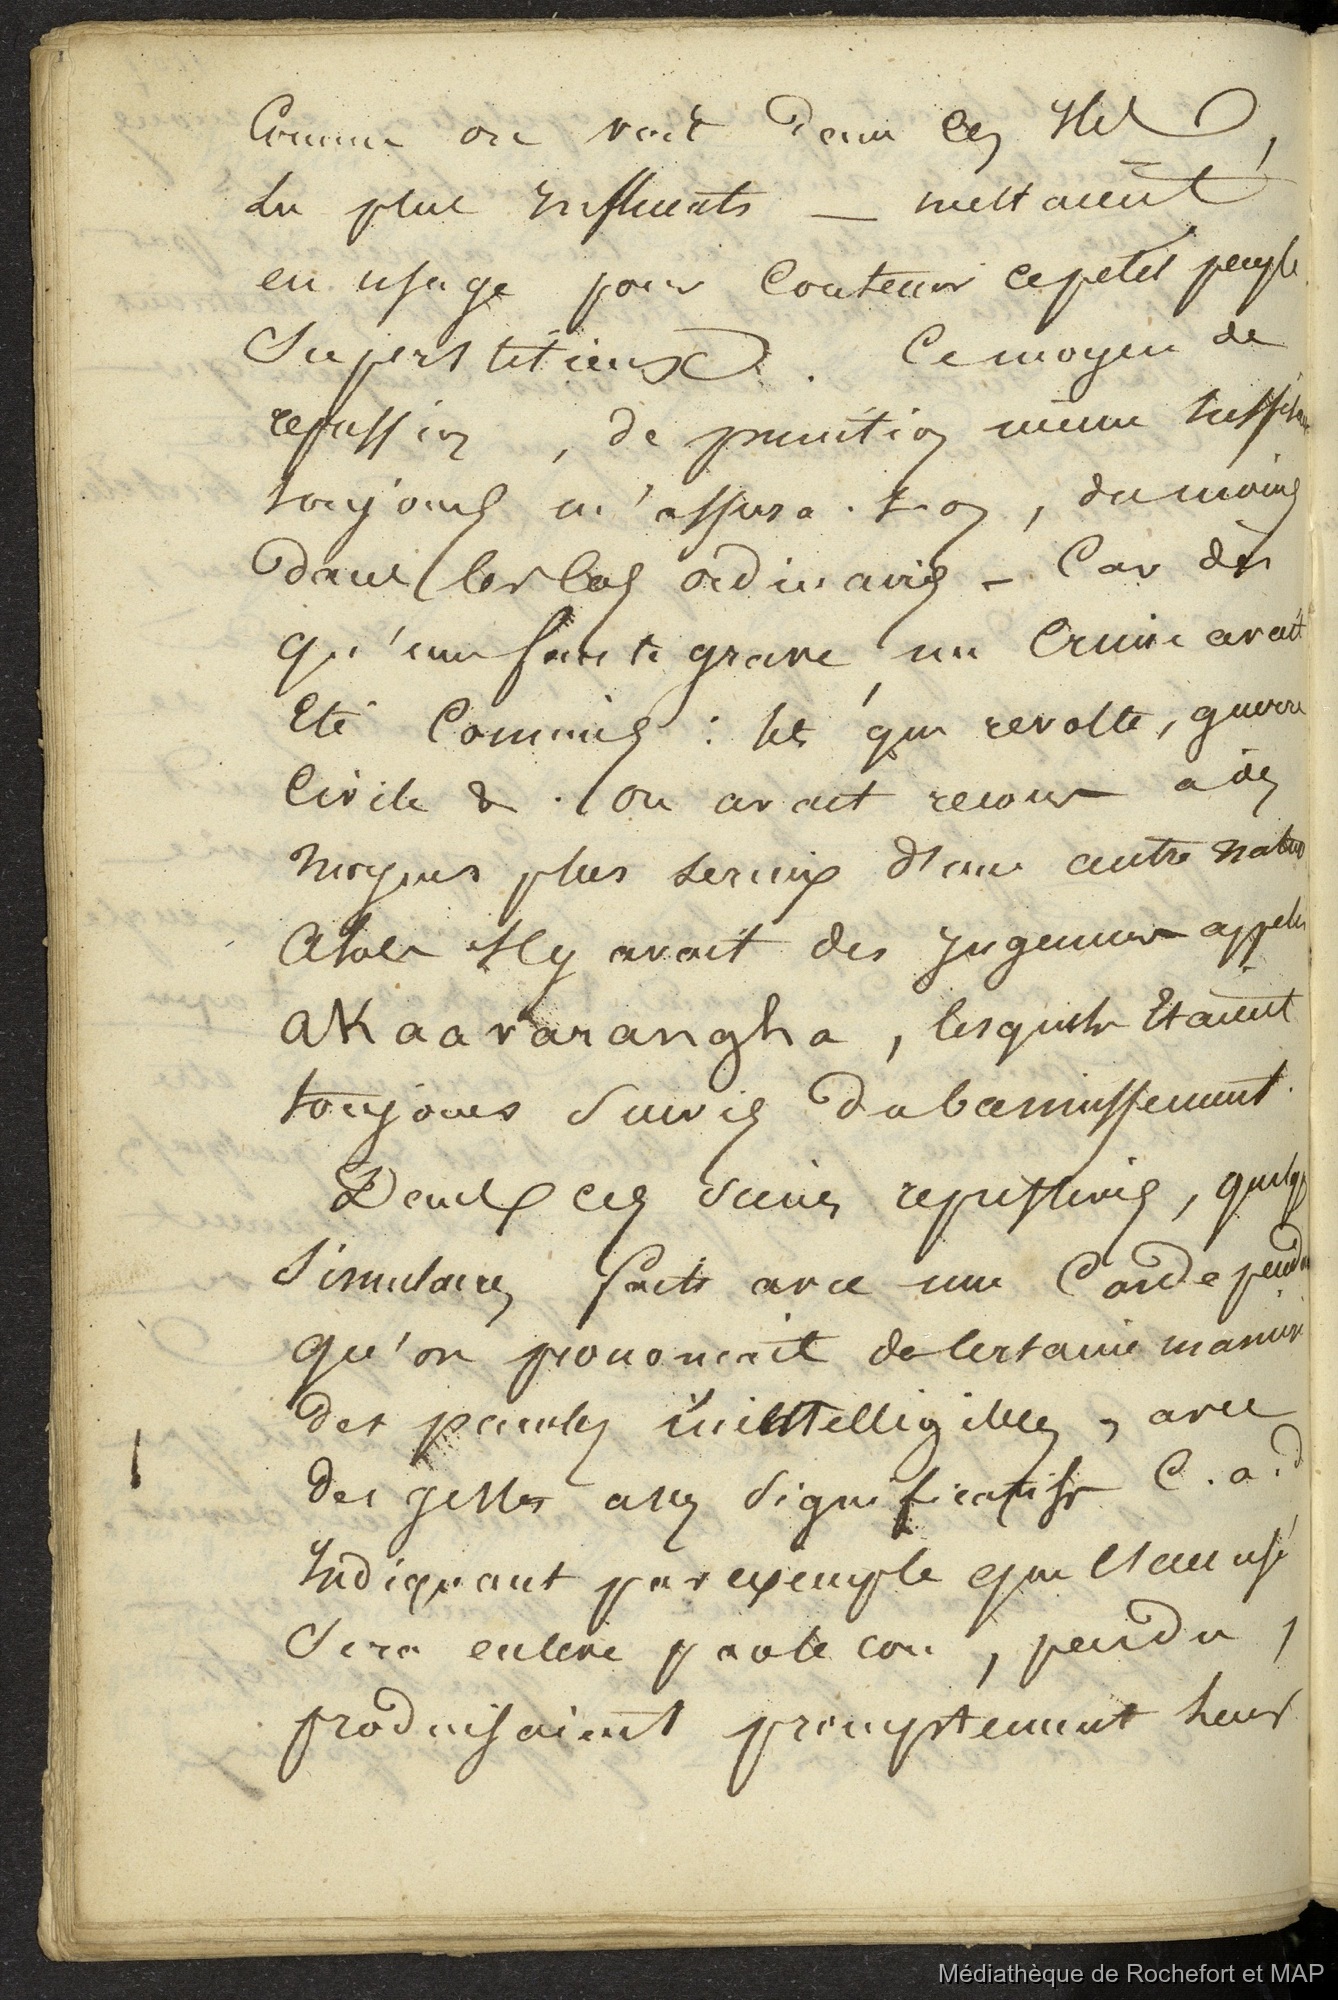 Comme on voit dans ces Iles,
les plus Influents — mettaient
en usage pour Contenir ce petit peuple
Superstitieux. Ce moyen de
repression, de punition même
toujours m'assura-t-on, du moins
dans les Cas ordinaires – Car dès
qu'une faute grave, un Crime avait
Eté Commis : tels que revolte, guerre
Civile & . On avait recours à des
moyens plus serieux d'une autre nature
Alors Il y avait des Jugemens appelés
akaavarangha, lesquels Etaient
toujours Suivis du bannissement.
Dans ces Scènes repressives, quelques
Simulacres faits avec une Corde pendue
qu'on prononcait de Certaine manière
des paroles inintelligibles, avec
des gestes assez Significatifs C.a.d
Indiquant par exemple que l'accusé
Sera enlevé par le cou, pendu,
produisaient promptement leur
Médiathèque de Rochefort et MAP